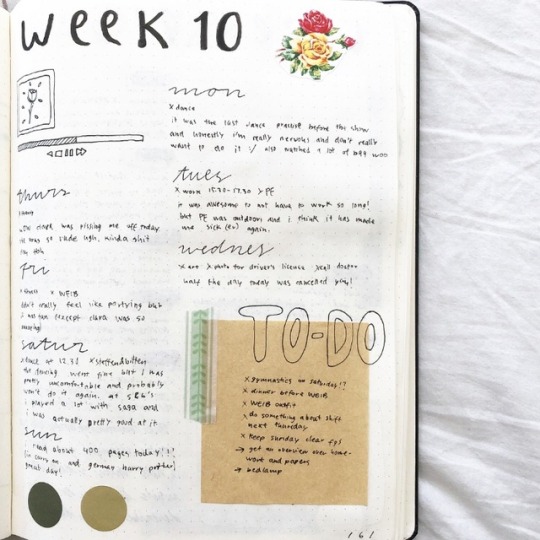 WEEK 10
mon
x dance
it was the last dance practise before the show
and honestly i'm really nervous and don't really
want to do it :/ also watched a lot of
tues
x work 15.30-17.30 > PE
it was awesome to not have to work so long!
but PE was outdoors and i think it has made
me sick (er) again.
wednes
x photo for driver's license
half the day today was cancelled yay!
thurs
was pissing me off today
rude ugh,
fri
x WEIB
didn't really feel like partying but
(except clara was so
satur
the dancing went fine but i was
pretty uncomfortable and probably
won't do it again. at
i played a lot with saga and
i was actually pretty good at it
sun
read about 400 pages today!!!
carry on and german harry potter!
great day!
TO-DO
x gymnastics on saturdays!?
x dinner before WEIB
x WEIB outfit
x do something about shift
next thursday
x keep sunday clear ffs
→ get an overview over home-
work and papers
→ bedlamp